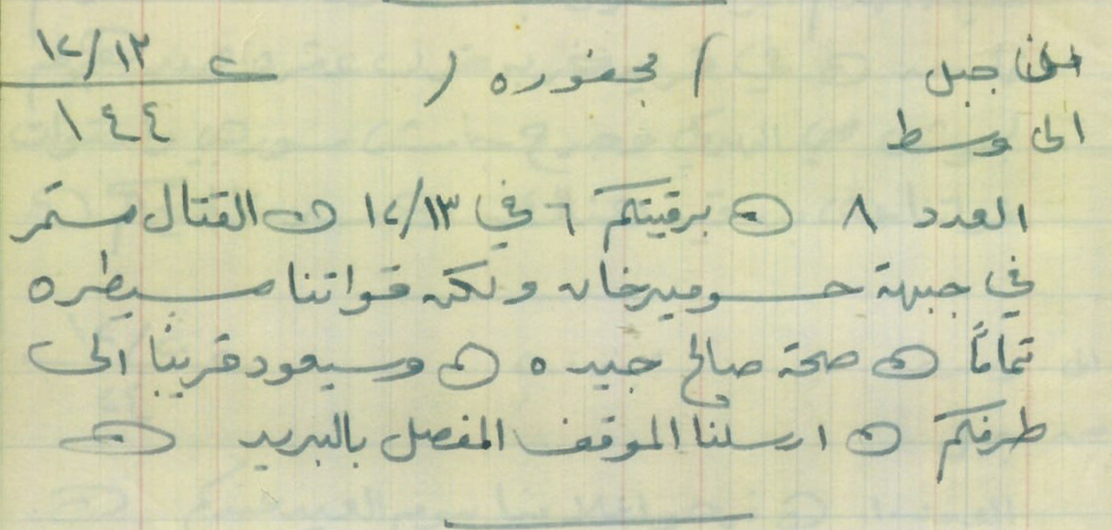 من جبل / محفوره / ١٢/١٣
الى وسط ١٤٤
العدد ٨ ⊙ برقيتكم ٦ في ١٢/١٣ ⊙ القتال مستمر
في جبهة حسوميرخان ولكن قواتنا مسيطره
تماماً ⊙ صحة صالح جيده ⊙ وسيعود قريباً الى
طرفكم ⊙ ارسلنا الموقف المفصل بالبريد ⊙